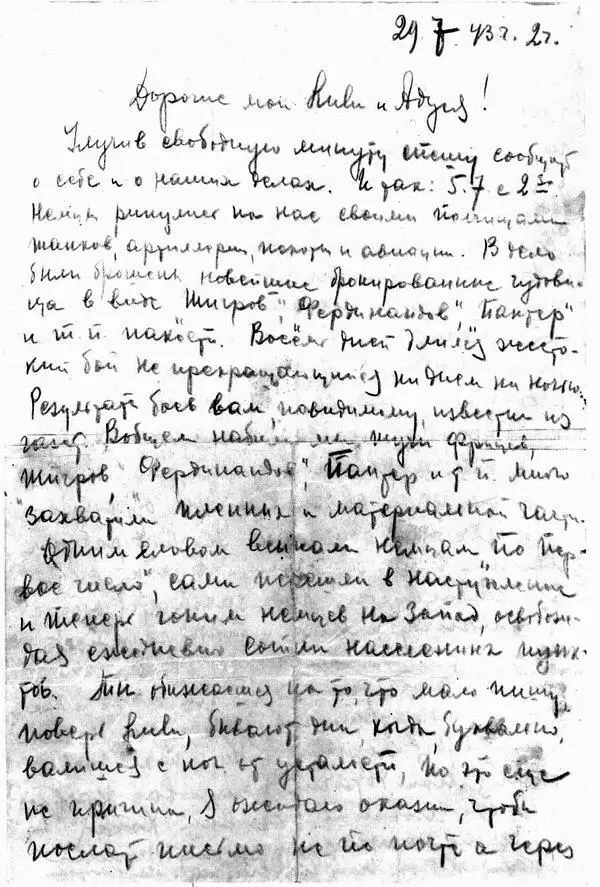 29 7 43 г. 2 г.
Дорогие мои Киви и Адуся!
Улучив свободную минуту спешу сообщить
о себе и о наших делах. И так: 5.7 с 2
Немцы ринулись на нас своими полчищами
танков, артиллерии, пехоты и авиации. В дело
были брошены новейшие бронированные чудови-
ща в виде "Тигров", "Фердинандов", "Пантер"
и т. п. пакость. Восемь дней длился жесто-
кий бой не прекращающийся ни днем ни ночью.
Результаты боев вам, повидимому, известны из
газет. Вобщем набили мы тучи фрицев,
"Тигров", "Фердинандов", "Пантер" и т. п. много
захватили пленных и материальной части.
Одним словом всыпали немцам "по пер-
вое число", сами перешли в наступление
и теперь гоним немцев на Запад, освобож-
дая ежедневно сотни населенных пунк-
тов. Ты обижаешься на то, что мало пишу
поверь Киви, бывают дни, когда, буквально,
валишься с ног от усталости, но это еще
не причина, я ожидаю оказии, чтобы
послать письмо не по почте а через